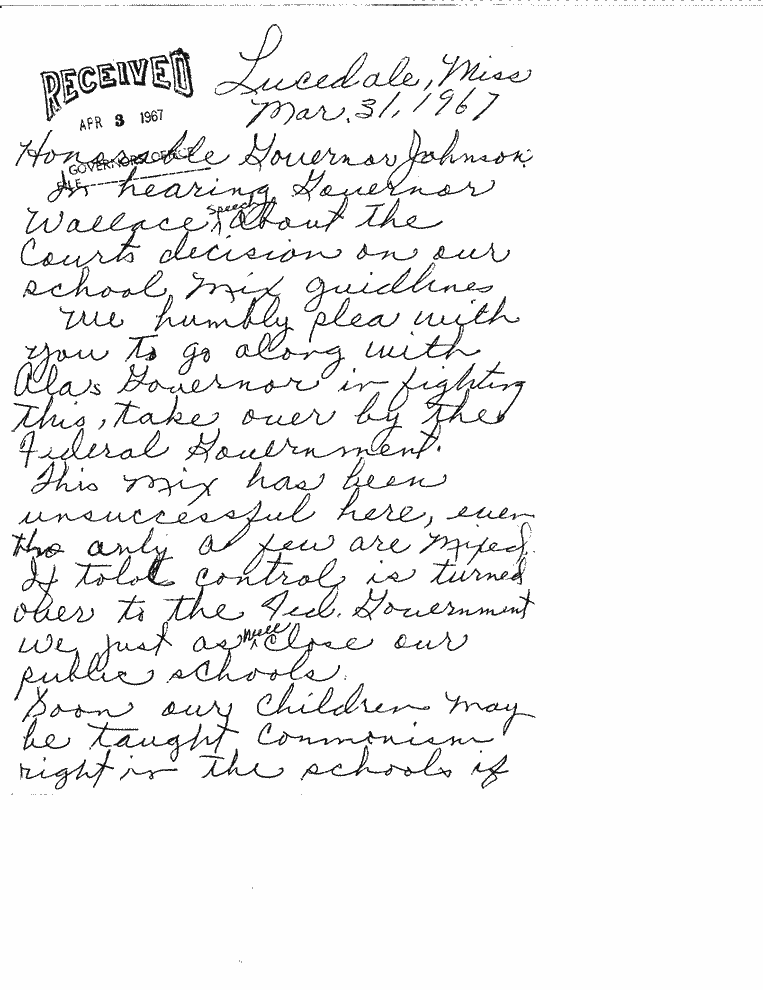 RECEIVED
APR 3 1967
GOVERNOR'S OFFICE
FILE
Lucedale, Miss
Mar. 31, 1967
Honorable Governor Johnson:
In hearing Governor
Wallace speech about the
Courts decision on our
school mix guidlines
We humbly plea with
you to go along with
Ala's Governor in fighting
this, take over by the
Federal Government.
This mix has been
unsuccessful here, even
tho only a few are mixed.
If totol control is turned
over to the Fed. Government
we just as well close our
public schools.
Soon our children may
be taught Commonism
right in the schools if